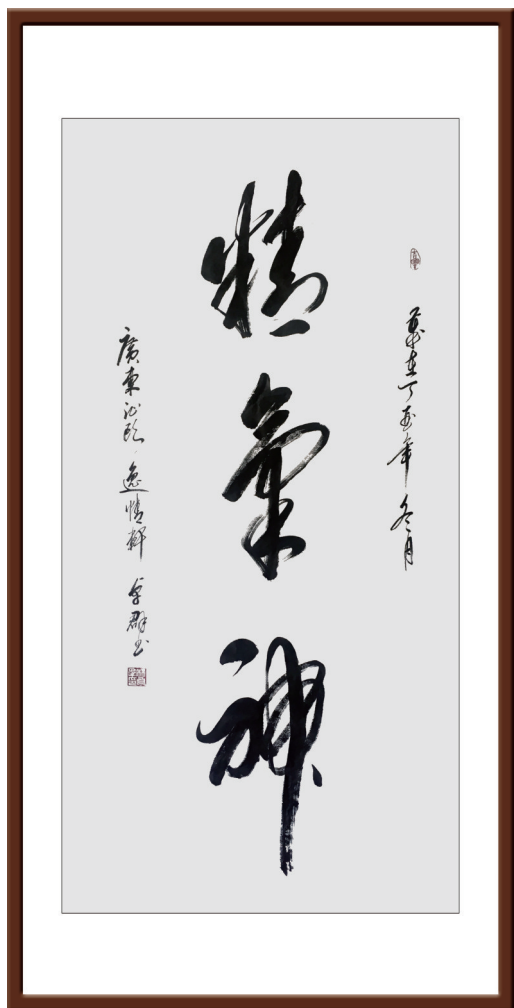 歲在丁酉年冬月
精氣神
廣東 逸情軒 群书